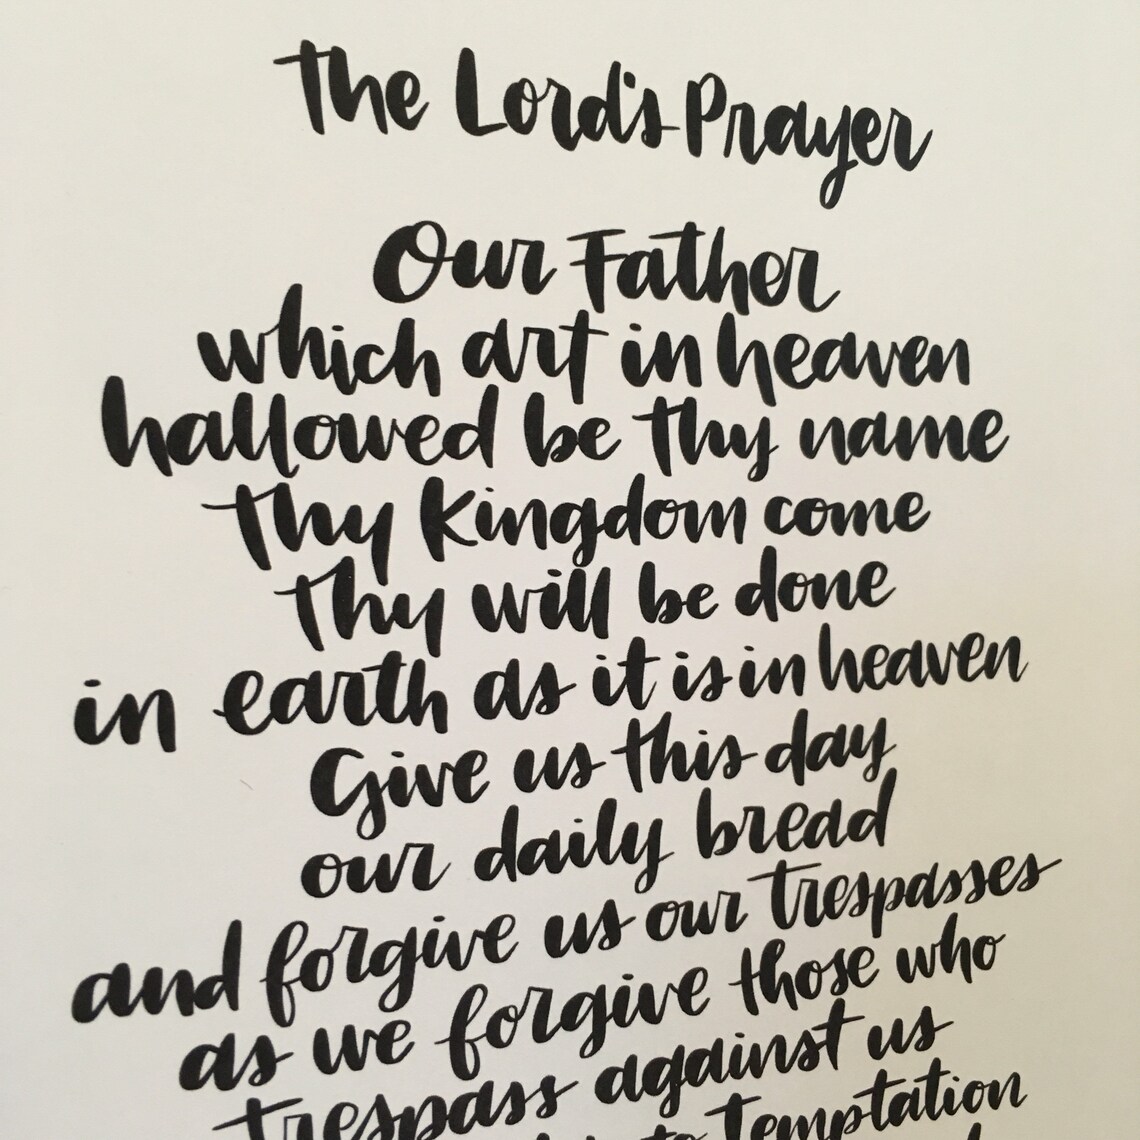 The Lord's Prayer
Our Father
which art in heaven
hallowed be thy name
Thy Kingdom come
Thy will be done
in earth as it is in heaven
Give us this day
our daily bread
and forgive us our trespasses
as we forgive those who
trespass against us
temptation